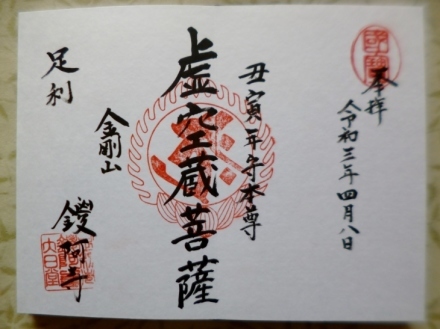 奉拝
令和三年四月八日
丑寅年守本尊
虚空蔵菩薩
金剛山
足利
鑁阿寺
大日堂